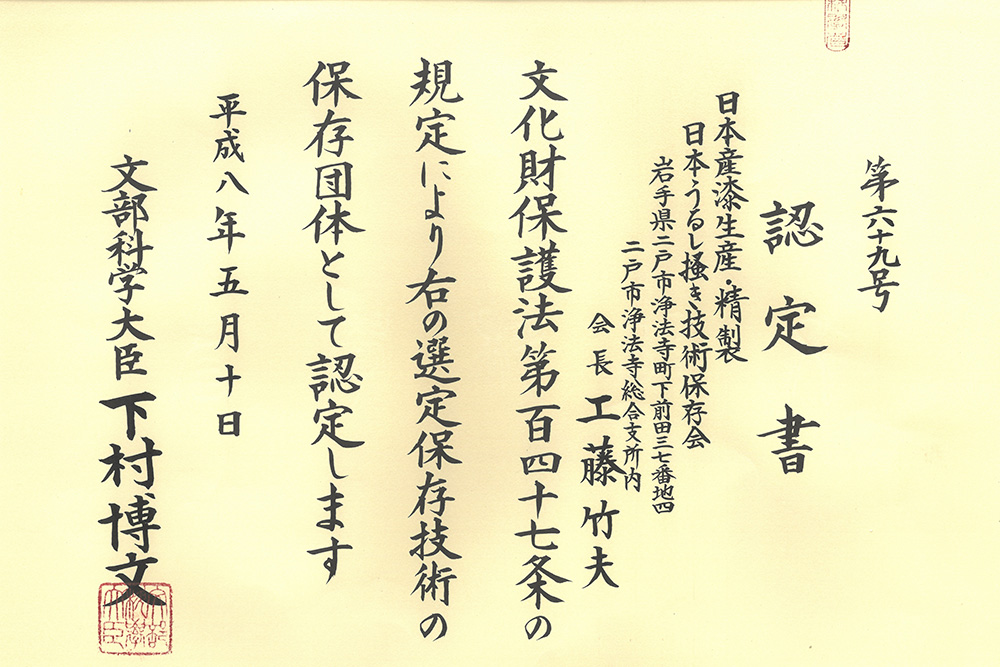 第六十九号
認定書
日本産漆生産・精製
日本うるし掻き技術保存会
岩手県二戸市浄法寺町下前田三七番地四
二戸市浄法寺総合支所内
会長 工藤竹夫
文化財保護法第百四十七条の
規定により右の選定保存技術の
保存団体として認定します
平成八年五月十日
文部科学大臣 下村博文